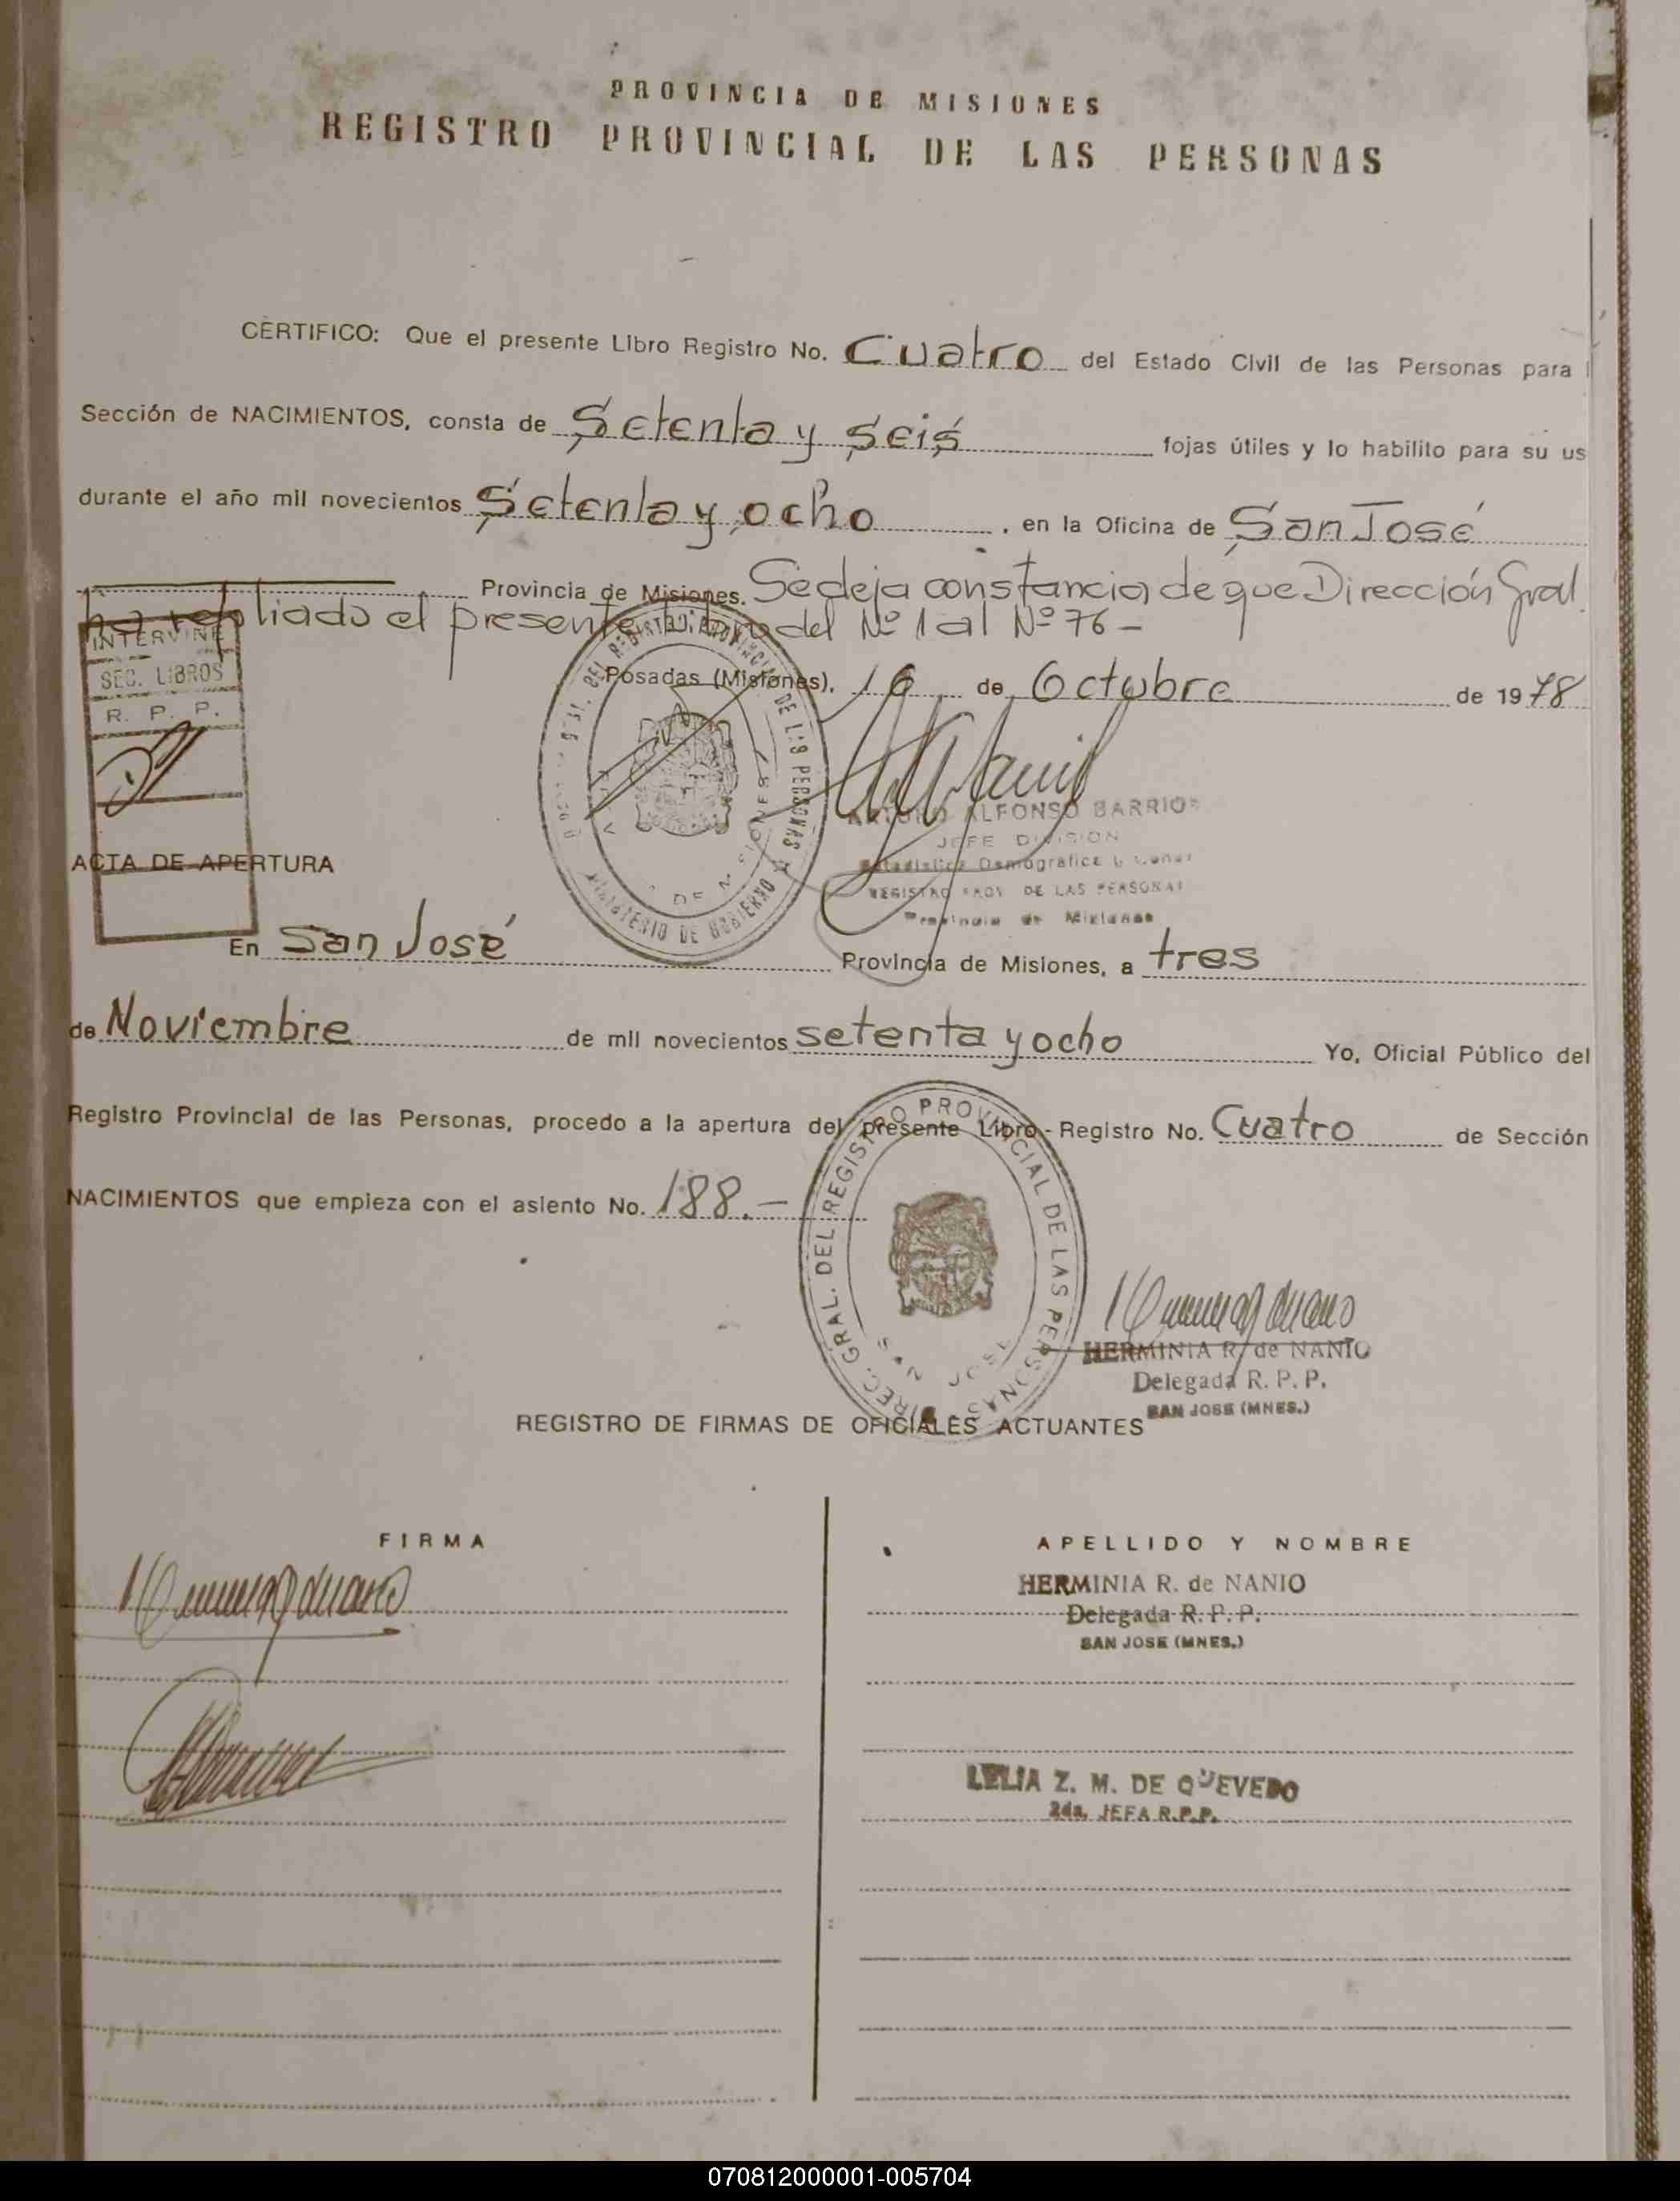 PROVINCIA DE MISIONES
REGISTRO PROVINCIAL DE LAS PERSONAS
CERTIFICO: Que el presente Libro Registro No. Cuatro del Estado Civil de las Personas para l
Sección de NACIMIENTOS, consta de Setenta y seis fojas útiles y lo habilito para su us
durante el año mil novecientos Setenta y ocho, en la Oficina de San José
Provincia de Misiones. Se deja constancia de que Dirección Gral.
ha refoliado el presente libro del Nº 1 al Nº 76 -
INTERVINE
SEC. LIBROS
R. P. P.
Posadas (Misiones), 16 de Octubre de 1978
DEL REGISTRO PROVINCIAL DE LAS PERSONAS
MINISTERIO DE GOBIERNO
DE MISIONES
ARTURO ALFONSO BARRIOS
JEFE DIVISION
Estadistica Demografica
REGISTRO PROV. DE LAS PERSONAS
Provincia de Misiones
ACTA DE APERTURA
En San José Provincia de Misiones, a tres
de Noviembre de mil novecientos setenta y ocho Yo, Oficial Público del
Registro Provincial de las Personas, procedo a la apertura del presente Libro - Registro No. Cuatro de Sección
NACIMIENTOS que empieza con el asiento No. 188.-
DIREC. GRAL. DEL REGISTRO PROVINCIAL DE LAS PERSONAS
SAN JOSE
HERMINIA R. de NANIO
Delegada R. P. P.
SAN JOSE (MNES.)
REGISTRO DE FIRMAS DE OFICIALES ACTUANTES
FIRMA
APELLIDO Y NOMBRE
HERMINIA R. de NANIO
Delegada R. P. P.
SAN JOSE (MNES.)
LELIA Z. M. DE QUEVEDO
2da. JEFA R.P.P.
070812000001-005704